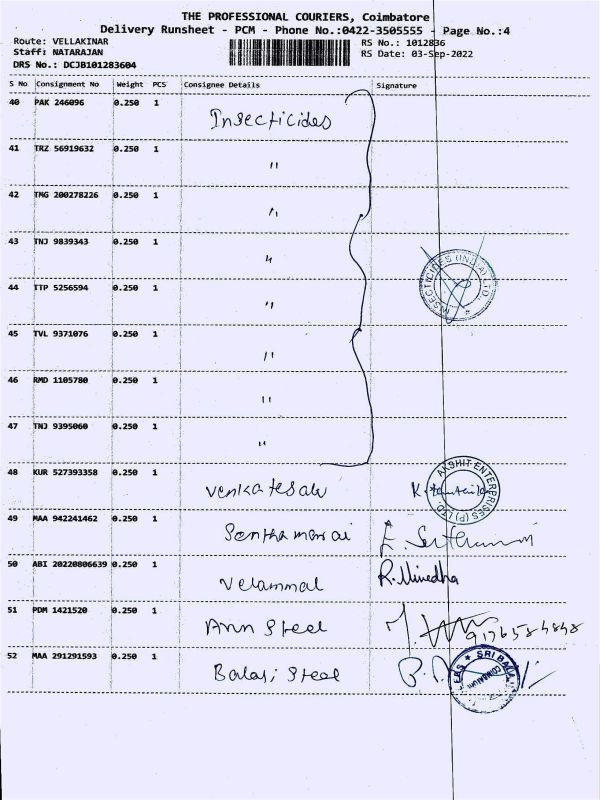 THE PROFESSIONAL COURIERS, Coimbatore
Delivery Runsheet - PCM - Phone No.:0422-3505555 - Page No.:4
Route: VELLAKINAR RS No.: 1012836
Staff: NATARAJAN RS Date: 03-Sep-2022
DRS No.: DCJB101283604
S No Consignment No Weight PCS Consignee Details Signature
40 PAK 246096 0.250 1 Insecticides
41 TRZ 56919632 0.250 1 "
42 TMG 200278226 0.250 1 "
43 TNJ 9839343 0.250 1 "
INSECTICIDES (INDIA) LTD.
44 TTP 5256594 0.250 1 "
45 TVL 9371076 0.250 1 "
46 RMD 1105780 0.250 1 "
47 TNJ 9395060 0.250 1 "
48 KUR 527393358 0.250 1 Venkatesalu
AKSHIT ENTERPRISES (P) LTD.
49 MAA 942241462 0.250 1
50 ABI 20220806639 0.250 1 Velammal
51 PDM 1421520 0.250 1 Ann Steel
52 MAA 291291593 0.250 1 Balaji Steel
SRI BALA